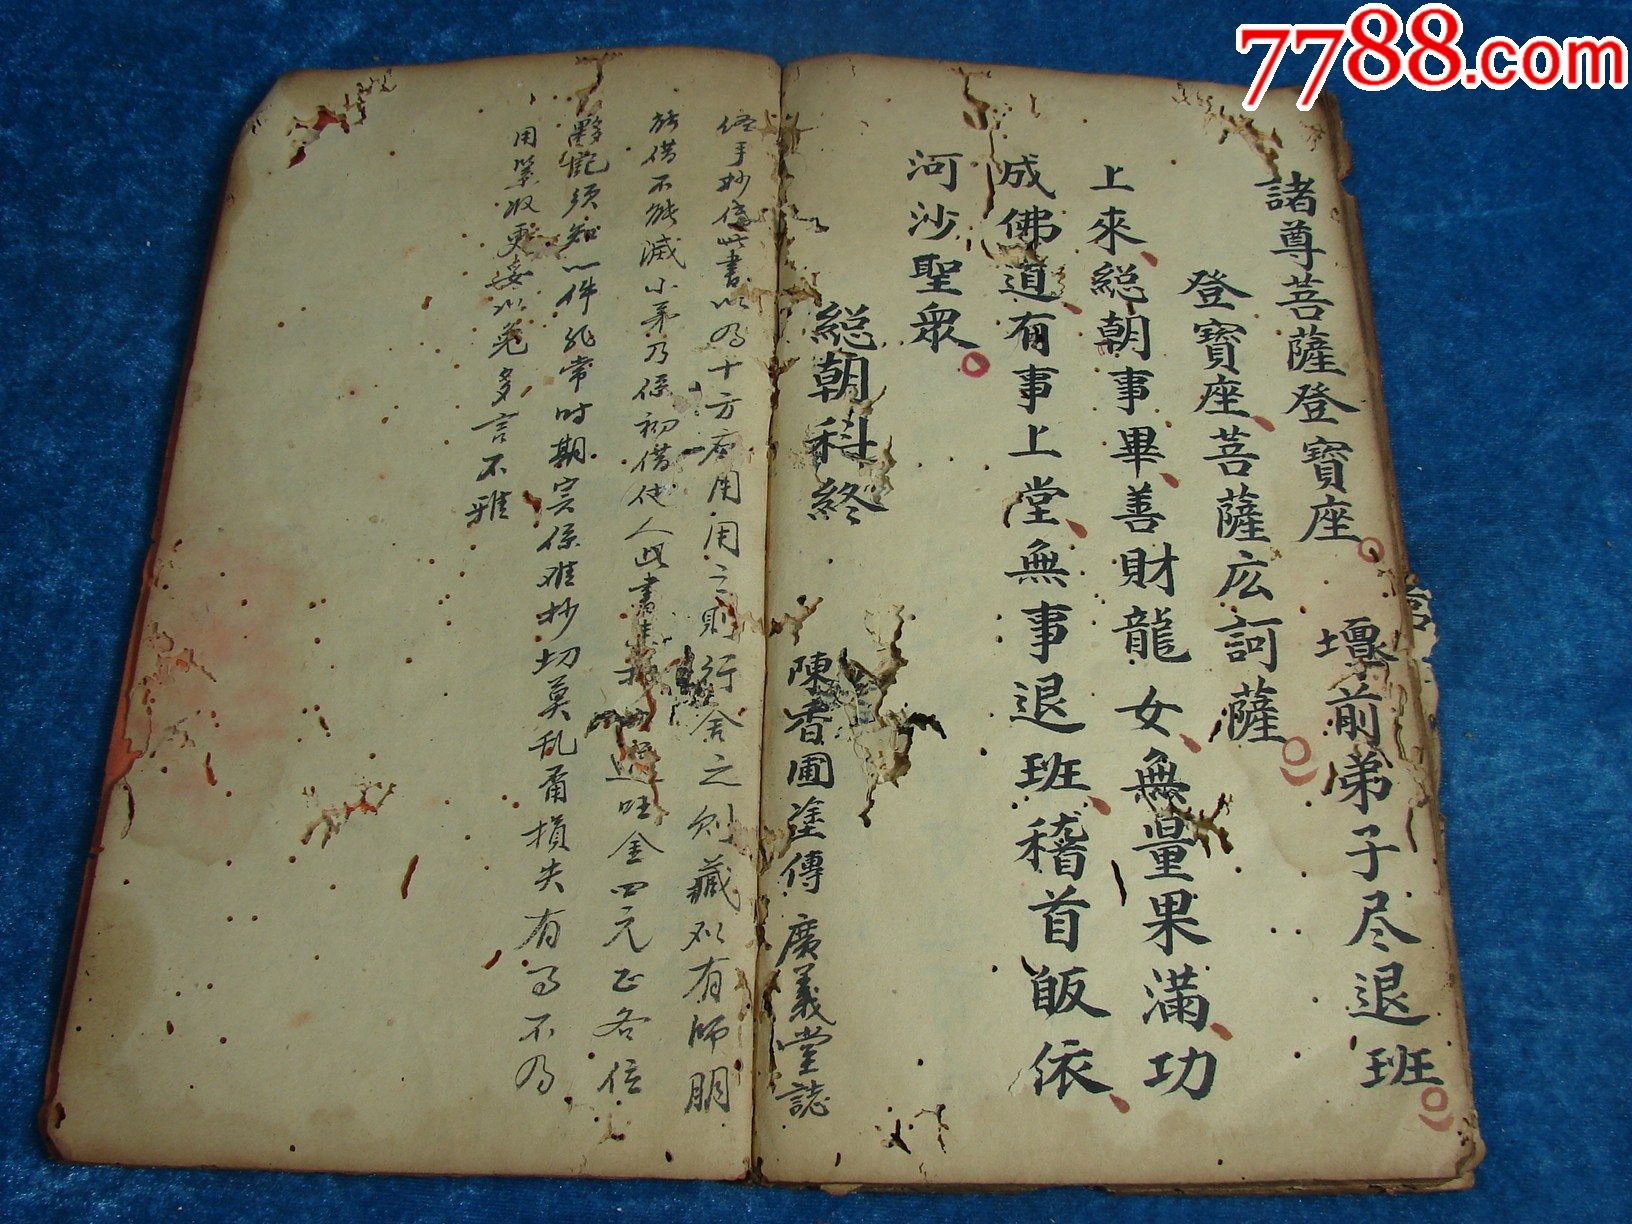 7788.com
諸尊菩薩登寶座 壇前弟子尽退班
登寶座菩薩広訶薩
上來総朝事畢善財龍女無量果滿功
成佛道有事上堂無事退班稽首皈依
河沙聖眾
総朝科終 陳香圃塗傳 廣義堂誌
手抄傳此書以为十方應用用之則行舍之則藏如有師朋
借不能滅小弟乃係初借他人此書 過旺金四元正各位
須知 件非常时期实係难抄切莫乱甬損失有与不为
用 收更妥以免多言不雅